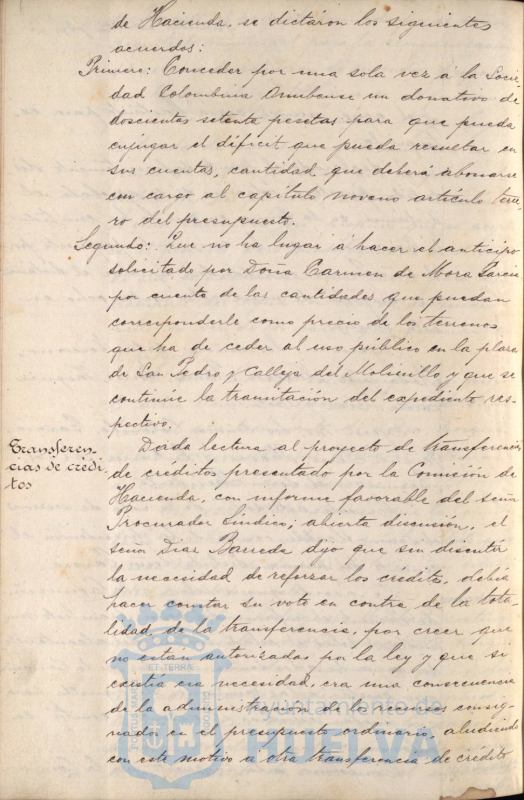 de Hacienda, se dictáron los siguientes
acuerdos:
Primero: Conceder por una sola vez á la Socie-
dad Colombina Onubense un donativo de
doscientas setenta pesetas para que pueda
enjugar el déficit que pueda resultar en
sus cuentas, cantidad que deberá abonarse
con cargo al capítulo noveno artículo terce-
ro del presupuesto.
Segundo: Que no ha lugar á hacer el anticipo
solicitado por Doña Carmen de Mora Garcia
por cuenta de las cantidades que puedan
corresponderle como precio de los terrenos
que ha de ceder al uso público en la plaza
de San Pedro y Calleja del Molinillo y que se
continúe la tramitación del expediente res-
pectivo.
Transferen-
cias de crédi-
tos
Dada lectura al proyecto de transferencias
de créditos presentado por la Comisión de
Hacienda, con informe favorable del señor
Procurador Síndico; abierta discusión, el
señor Diaz Barreda dijo que sin discutir
la necesidad de reforzar los créditos, debía
hacer constar su voto en contra de la tota-
lidad de la transferencia, por creer que
no están autorizadas por la ley y que si
existía esa necesidad, era una consecuencia
de la administración de los recursos consig-
nados en el presupuesto ordinario, aludiendo
con este motivo a otra transferencia de crédito
PORTUS MARIS
ET TERRÆ
CUSTODIA
Ayuntamiento de
HUELVA